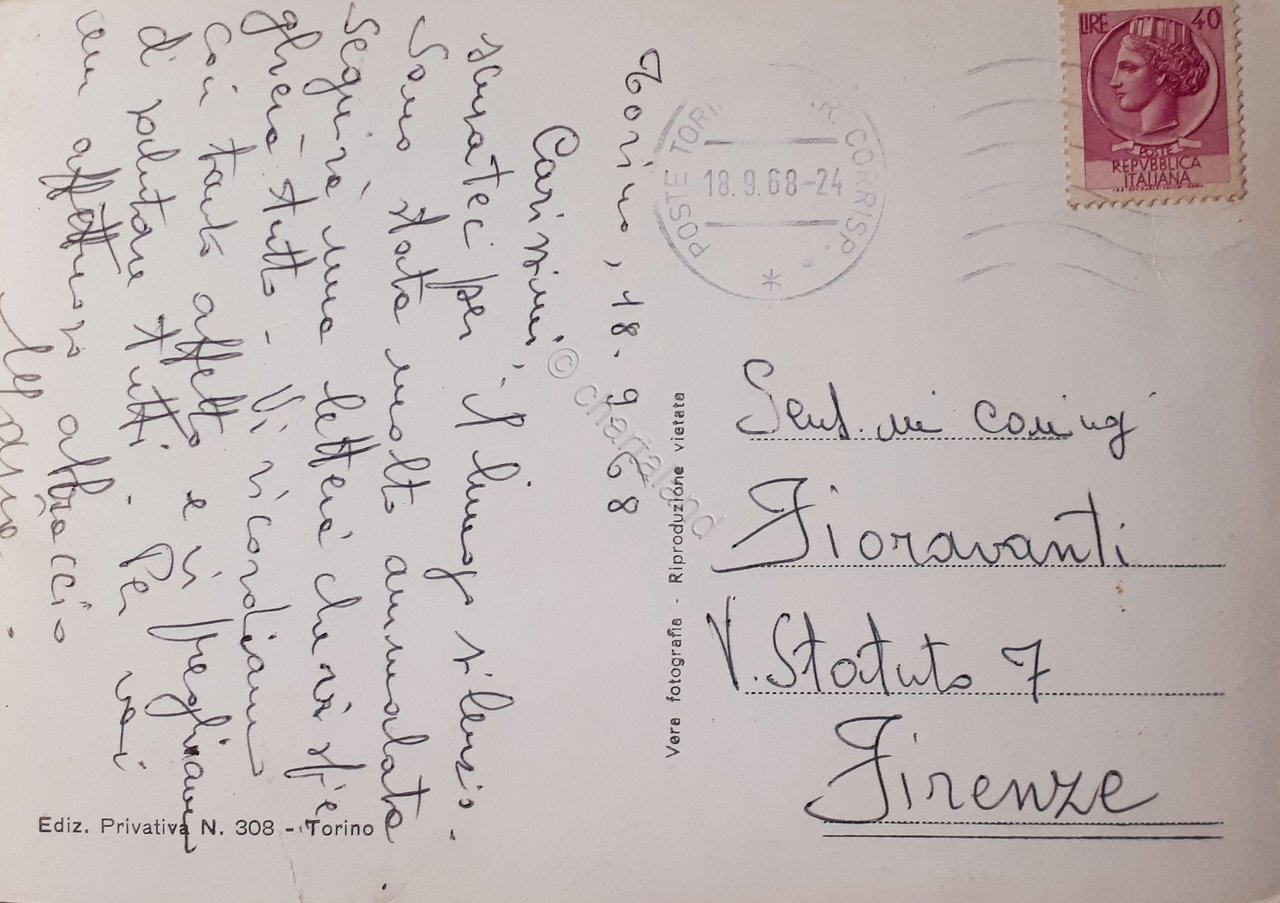 Torino, 18.9.68
Carissimi,
scusateci per il lungo silenzio.
Sono stata molto ammalata
Seguirà una lettera che vi spie
gherà tutto - Vi ricordiamo
con tanto affetto e vi preghiamo
di salutare tutti. Per voi
un affettuoso abbraccio
LIRE 40
POSTE
REPVBBLICA
ITALIANA
POSTE TORINO CORRISP.
18.9.68-24
Gent.mi coniugi
Fioravanti
V. Statuto 7
Firenze
Vera fotografia - Riproduzione vietata
Ediz. Privativa N. 308 - Torino
© chartaland